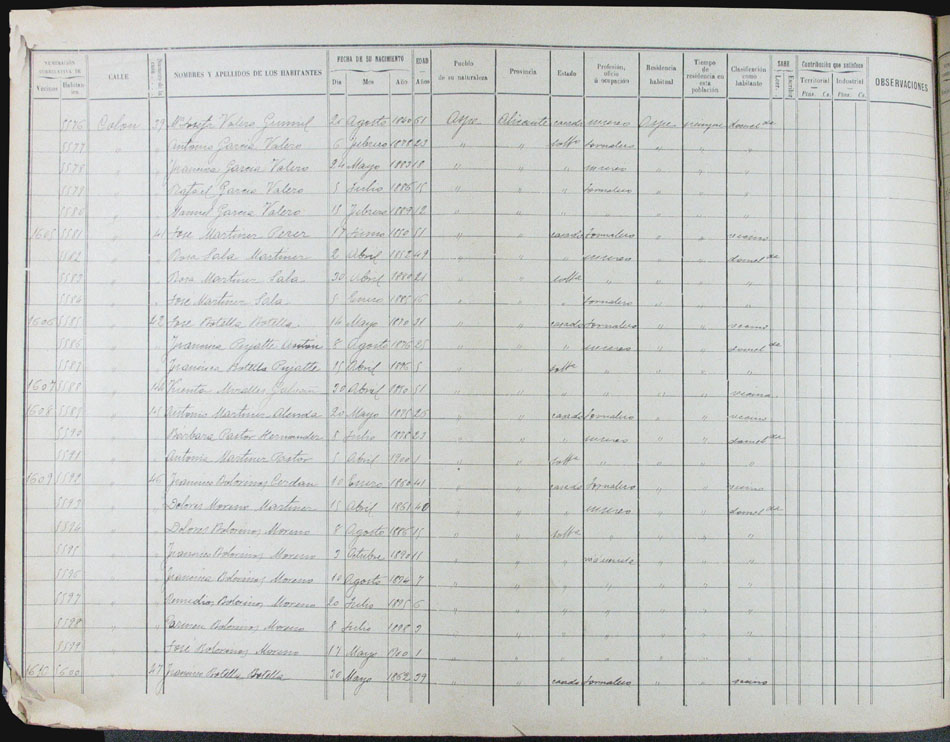 NUMERACIÓN CORRELATIVA DE Vecinos Habitantes CALLE NOMBRES Y APELLIDOS DE LOS HABITANTES FECHA DE SU NACIMIENTO Día Mes Año EDAD Años Pueblo de su naturaleza Provincia Estado Profesión, oficio ú ocupación Residencia habitual Tiempo de residencia en esta población Clasificación como habitante SABE Leer Escribir Contribución que satisface Territorial Ptas. Cs. Industrial Ptas. Cs. OBSERVACIONES
5576 Colon 39 Valero 26 Agosto 1850 51 Aspe Alicante Aspe
5577 " " Antonio Garcia Valero 6 Febrero 1878 23 " " Jornalero " " "
5578 " " Francisca Garcia Valero 24 Mayo 1883 18 " " " " " "
5579 " " Rafael Garcia Valero 5 Julio 1886 15 " " " Jornalero " " "
5580 " " Manuel Garcia Valero 18 Febrero 1889 12 " " " " " " "
1605 5581 " 41 Jose Martinez Perez 17 Junio 1850 51 " " Jornalero " " vecino
5582 " " Rosa Sala Martinez 2 Abril 1852 49 " " " " "
5583 " " Rosa Martinez Sala 30 Abril 1880 21 " " " " " "
5584 " " Jose Martinez Sala 5 Enero 1885 16 " " " Jornalero " " "
1606 5585 " 42 Jose Botella Botella 14 Mayo 1870 31 " " Jornalero " " vecino
5586 " " Francisca Pujalte Anton 8 Agosto 1876 25 " " " " "
5587 " " Francisca Botella Pujalte 15 Abril 1896 5 " " " " " "
1607 5588 " Vicenta Miralles 20 Abril 1850 51 " " " " " " vecina
1608 5589 " 45 Antonio Martinez Alenda 20 Mayo 1875 26 " " Jornalero " " vecino
5590 " " Bárbara Pastor Hernandez 8 Julio 1878 23 " " " " "
5591 " " Antonia Martinez Pastor 5 Abril 1900 1 " " " " " "
1609 5592 " 46 Francisco Bolorinos Cerdan 10 Enero 1860 41 " " Jornalero " " vecino
5593 " " Dolores Moreno Martinez 15 Abril 1861 40 " " " " "
5594 " " Dolores Bolorinos Moreno 8 Agosto 1886 15 " " " " " "
5595 " " Francisco Bolorinos Moreno 2 Octubre 1890 11 " " " " " "
5596 " " Francisca Bolorinos Moreno 10 Agosto 1894 7 " " " " " " "
5597 " " Remedios Bolorinos Moreno 20 Julio 1895 6 " " " " " " "
5598 " " Carmen Bolorinos Moreno 8 Julio 1898 3 " " " " " " "
5599 " " José Bolorinos Moreno 17 Mayo 1900 1 " " " " " " "
1610 5600 " 47 Francisco Botella Botella 30 Mayo 1862 39 " " Jornalero " " vecino